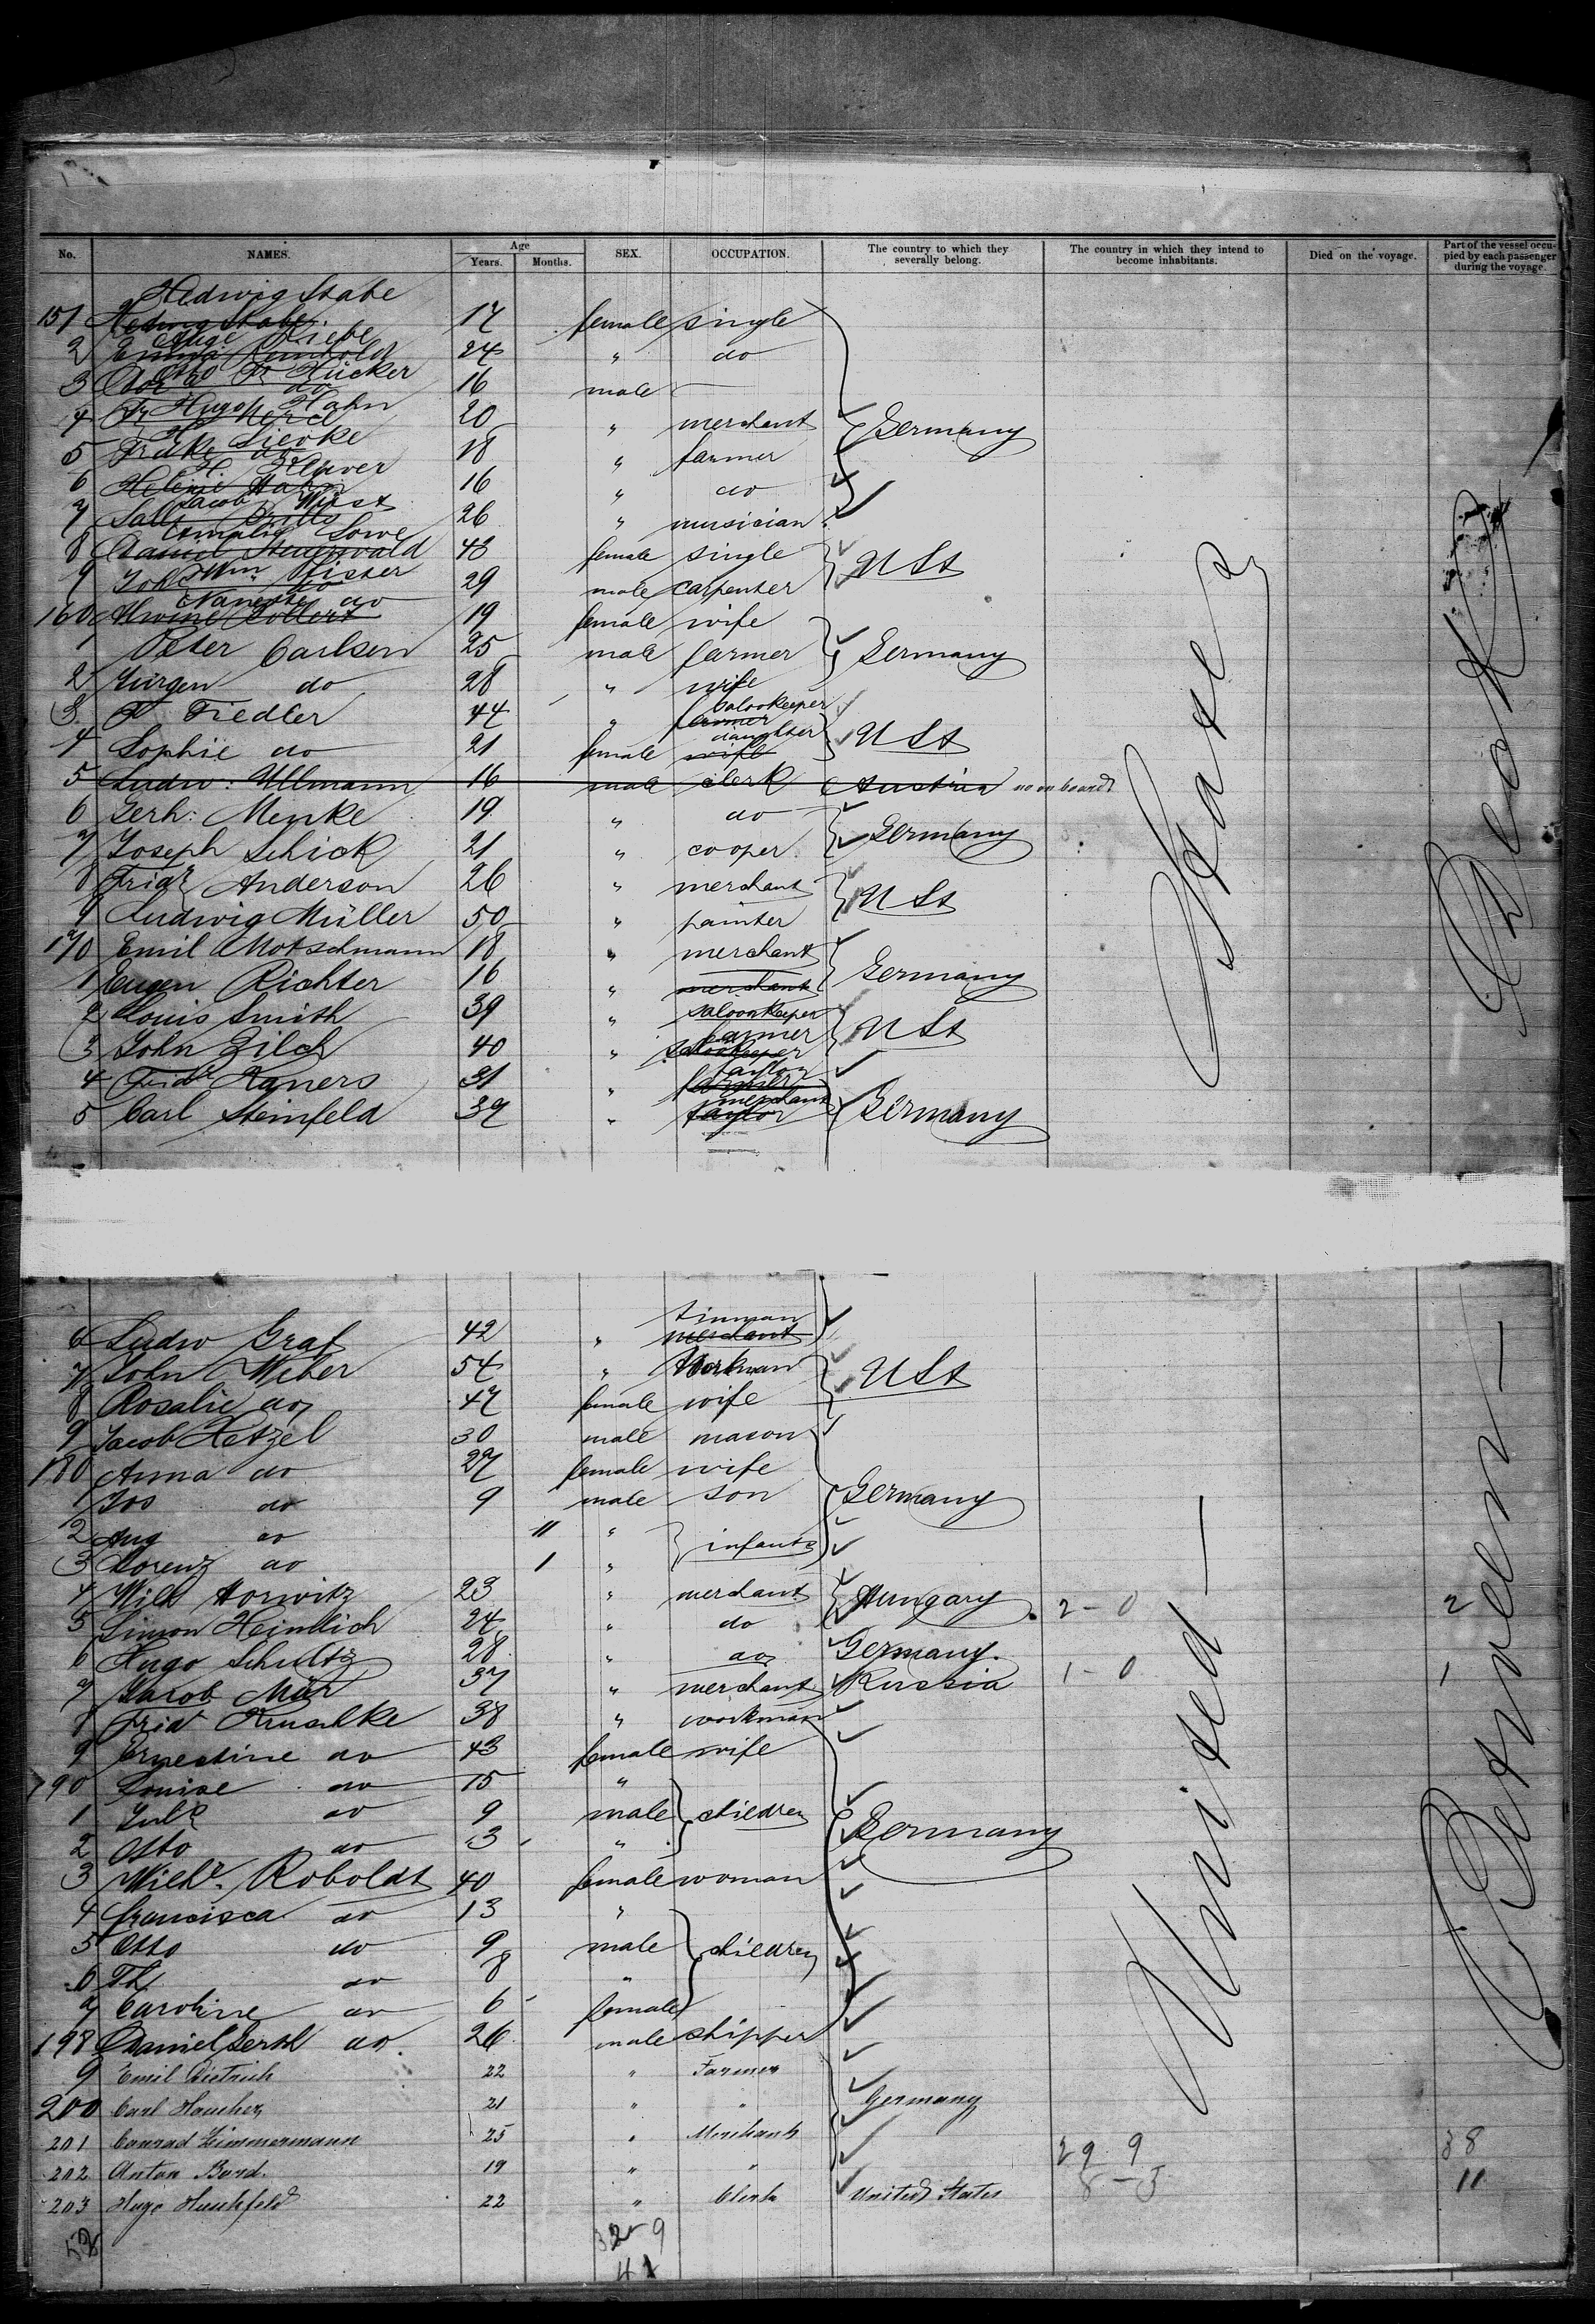 No. NAMES. Age Years. Months. SEX. OCCUPATION. The country to which they severally belong. The country in which they intend to become inhabitants. Died on the voyage. Part of the vessel occupied by each passenger during the voyage.
Hedwig Stabe
151 Hedwig Stabe 17 female single
2 Emma Reinhold 24 " do
3 Otto Fr Hücker 16 male
4 Hugo Hahn 20 " merchant Germany
5 Lievke 18 " farmer
6 Helene Hahn 16 " do
7 Jacob Wüst 26 " musician
8 Amalia Lowe 43 female single U St
9 Wm Pfister 29 male carpenter
160 Nanette do 19 female wife
1 Peter Carlsen 25 male farmer Germany
2 Jürgen do 28 " wife
3 F Fiedler 44 " bookkeeper farmer
4 Sophie do 21 female daughter wife U St
5 Ludw: Ullmann 16 male clerk Austria no on board
6 Gerh: Menke 19 " do
7 Joseph Schick 21 " cooper Germany
8 Fridr Anderson 26 " merchant U St
9 Ludwig Müller 50 " painter
170 Emil Motschmann 18 " merchant
1 Eugen Richter 16 " merchant Germany
2 Louis Smith 39 " saloonkeeper
3 John Zilch 40 " farmer saloonkeeper U St
4 Fridr Kaners 31 " taylor farmer
5 Carl Steinfeld 37 " merchant taylor Germany
6 Ludw Graf 42 " tinman merchant
7 John Weber 54 " Workman U St
8 Rosalie do 47 female wife
9 Jacob Hetzel 30 male mason
180 Anna do 27 female wife
1 Jos do 9 male son Germany
2 Aug do 11 "
3 Lorenz do 1 " infants
4 Wilh Horwitz 23 " merchant Hungary 2 - 0 2
5 Simon Heimlich 24 " do
6 Hugo Schultz 28 " do Germany.
7 Jacob Mür 37 " merchant Russia 1 - 0 1
8 Fridr Kruschke 38 " workman
9 Ernestine do 43 female wife
190 Louise do 15 "
1 Jul do 9 male children
2 Otto do 3 " Germany
3 Wilhe. Roboldt 40 female woman
4 Francisca do 13 "
5 Otto do 9 male children
6 Th do 8 "
7 Caroline do 6 female
198 Daniel Gersch do. 26 male shipper
9 Emil Dietrich 22 " Farmer
200 Carl Haucher 21 " " Germany
201 Conrad Zimmermann 25 " Merchant
202 Anton Bard. 19 " " 29 9 38
203 Hugo Huschfeld 22 " Clerk United States 8 - 3 11
52 32 9
41
United States
Between Deck